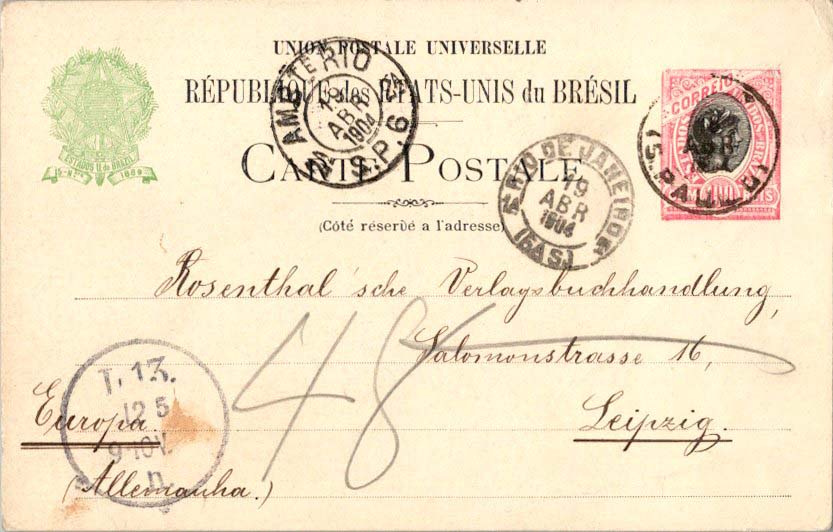 UNION POSTALE UNIVERSELLE
RÉPUBLIQUE des ÉTATS-UNIS du BRÉSIL
CARTE POSTALE
(Côté réservé a l'adresse)
ESTADOS U. do BRAZIL
15-Nº-1889
RIO
19
ABR
1904
S.P. 6
RIO DE JANEIRO
19
ABR
1904
(GAS.)
CORREIO
100 REIS
(S. PAULO)
Rosenthal'sche Verlagsbuchhandlung,
Salomonstrasse 16,
Leipzig.
48
Europa.
(Allemanha.)
T. 13.
12 5
9-10V.
n